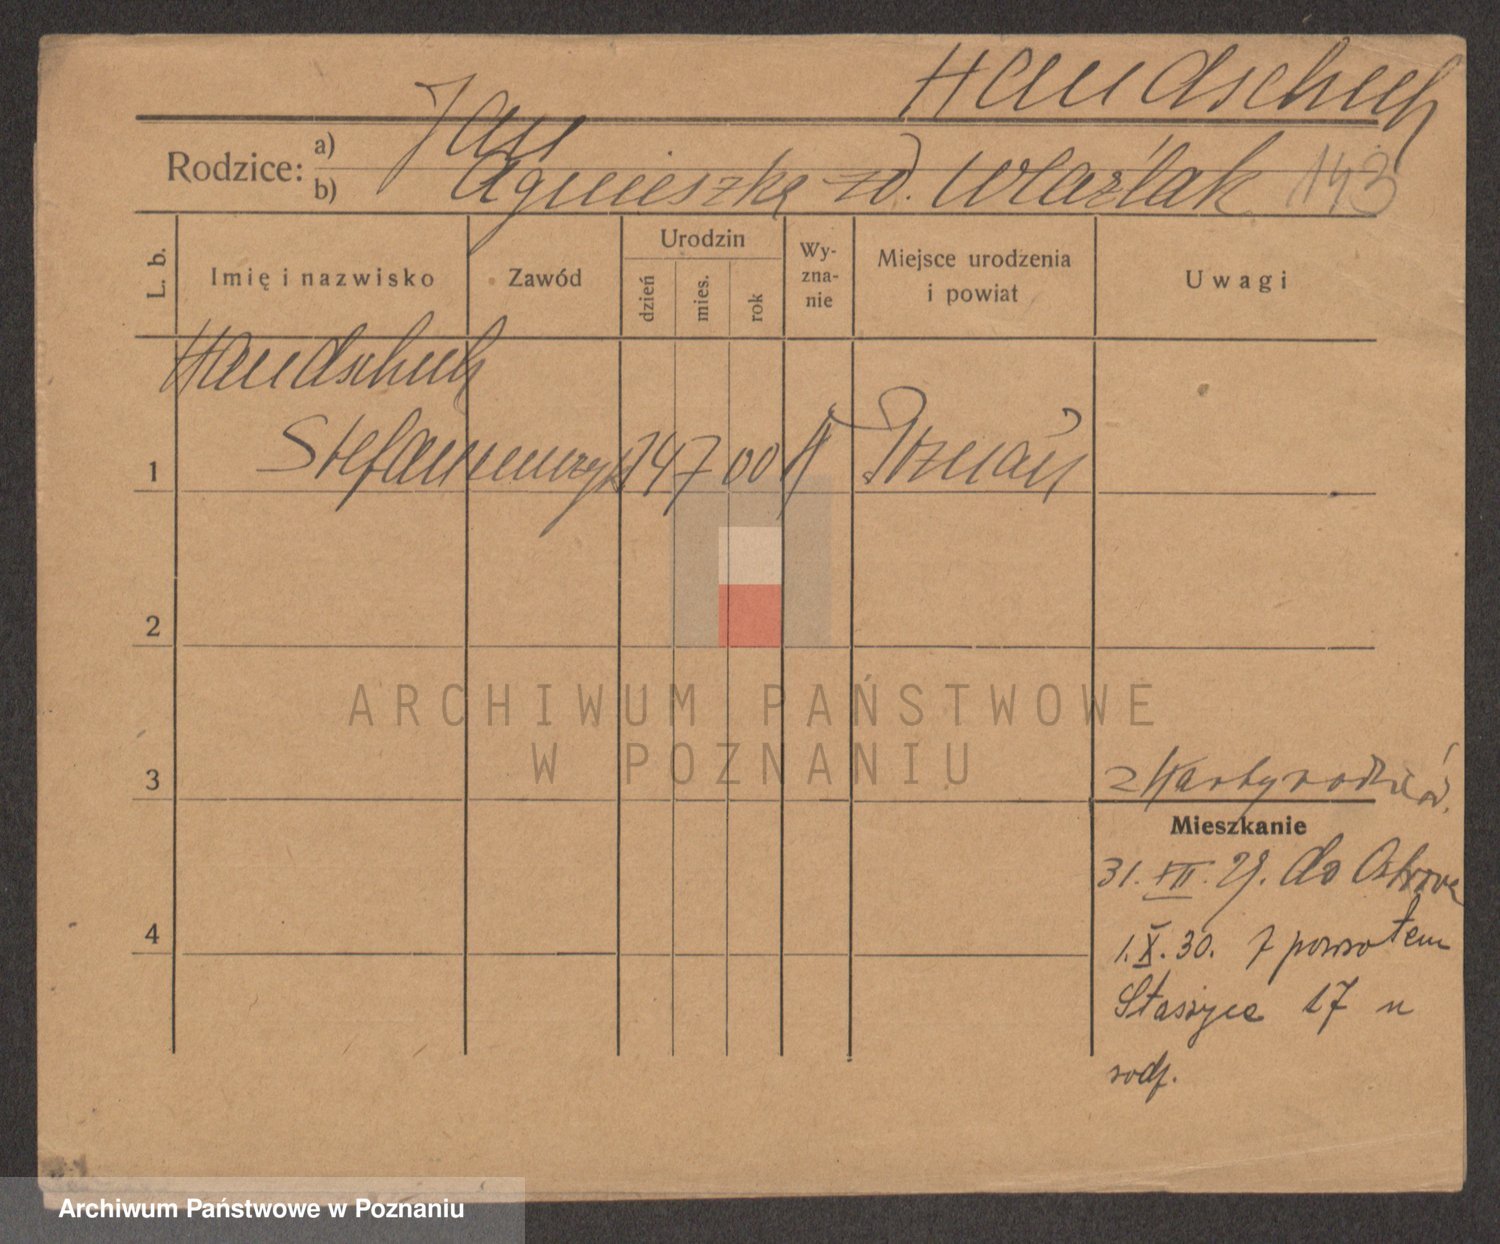 Handschuh
Rodzice: a) Jan
b) Agnieszka zd. Wlaźlak 143
L. b. Imię i nazwisko Zawód Urodzin dzień mies. rok Wy-zna-nie Miejsce urodzenia i powiat Uwagi
Handschuh
1 Stefan 14 7 00 K Poznań
2
3 z karty rodziców.
Mieszkanie
31. VII. 29. do Ostrowa
4
1. X. 30. z powrotem
Staszyca 17 u
rodz.
ARCHIWUM PAŃSTWOWE
W POZNANIU
Archiwum Państwowe w Poznaniu